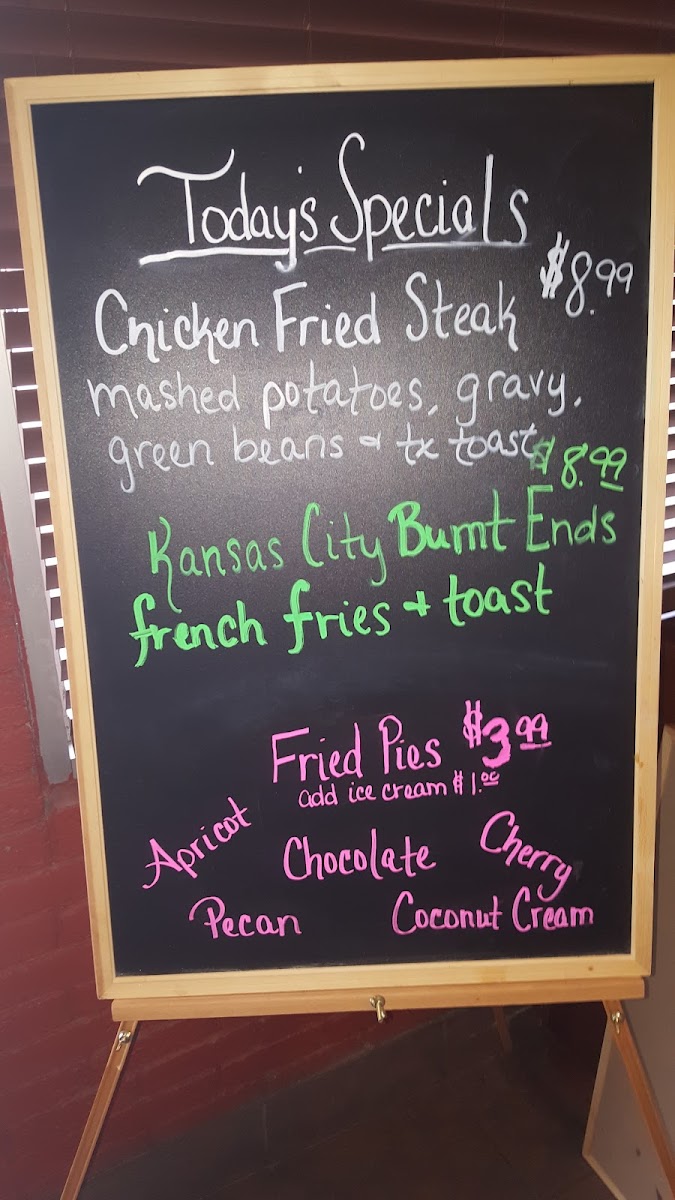 Today's Specials
Chicken Fried Steak $8.99
mashed potatoes, gravy,
green beans & tx toast
$8.99
Kansas City Burnt Ends
french fries & toast
Fried Pies $3.99
add ice cream $1.00
Apricot Chocolate Cherry
Pecan Coconut Cream